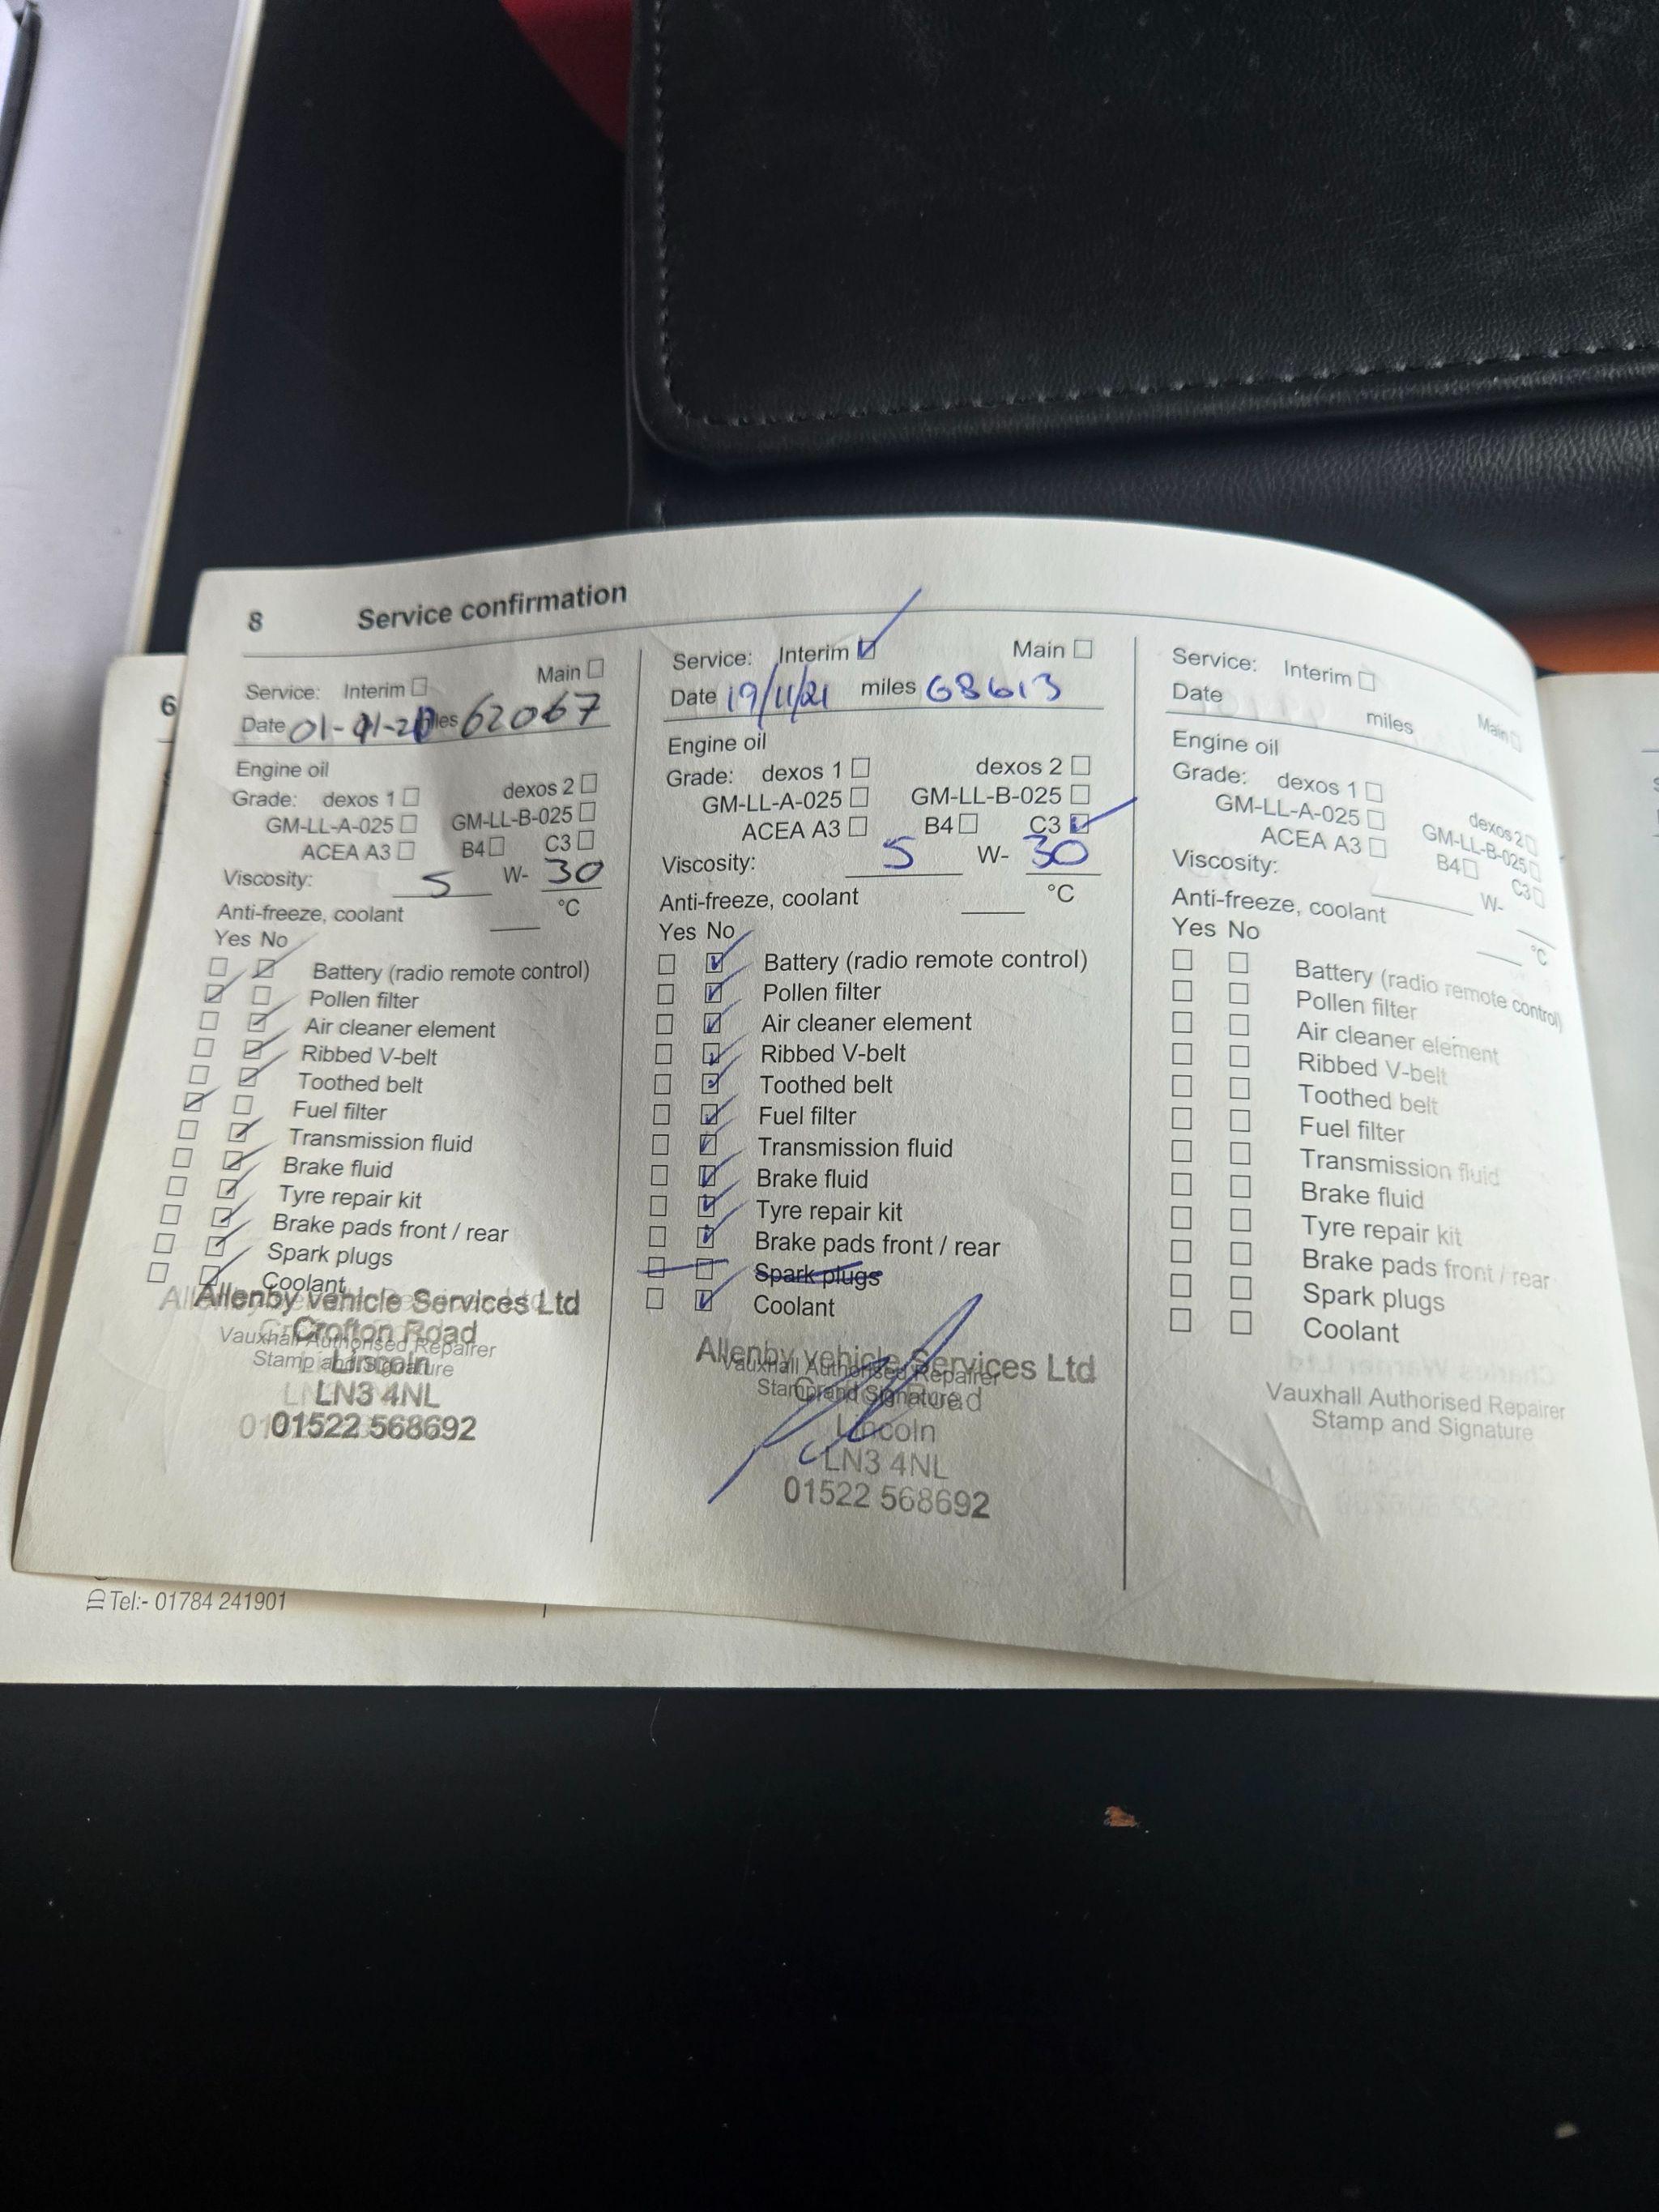 8 Service confirmation
Service: Interim Main
Date 01- miles 62067
Engine oil
Grade: dexos 1 dexos 2
GM-LL-A-025 GM-LL-B-025
ACEA A3 B4 C3
Viscosity: 5 W- 30
Anti-freeze, coolant °C
Yes No
Battery (radio remote control)
Pollen filter
Air cleaner element
Ribbed V-belt
Toothed belt
Fuel filter
Transmission fluid
Brake fluid
Tyre repair kit
Brake pads front / rear
Spark plugs
Coolant
Allenby vehicle Services Ltd
Crofton Road
Vauxhall Authorised Repairer
Lincoln
Stamp and Signature
LN3 4NL
01522 568692
Service: Interim Main
Date 19/11/21 miles 68613
Engine oil
Grade: dexos 1 dexos 2
GM-LL-A-025 GM-LL-B-025
ACEA A3 B4 C3
Viscosity: 5 W- 30
Anti-freeze, coolant °C
Yes No
Battery (radio remote control)
Pollen filter
Air cleaner element
Ribbed V-belt
Toothed belt
Fuel filter
Transmission fluid
Brake fluid
Tyre repair kit
Brake pads front / rear
Spark plugs
Coolant
Allenby vehicle Services Ltd
Vauxhall Authorised Repairer
Stamp and Signature
Road
Lincoln
LN3 4NL
01522 568692
Service: Interim Main
Date miles
Engine oil
Grade: dexos 1 dexos 2
GM-LL-A-025 GM-LL-B-025
ACEA A3 B4 C3
Viscosity: W-
Anti-freeze, coolant °C
Yes No
Battery (radio remote control)
Pollen filter
Air cleaner element
Ribbed V-belt
Toothed belt
Fuel filter
Transmission fluid
Brake fluid
Tyre repair kit
Brake pads front / rear
Spark plugs
Coolant
Vauxhall Authorised Repairer
Stamp and Signature
6
Tel:- 01784 241901